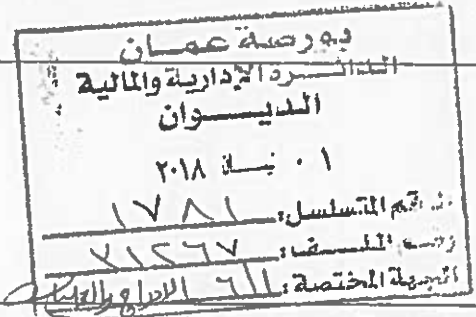 بورصة عمان
الدائرة الإدارية والمالية
الديوان
٠١ نيسان ٢٠١٨
الرقم المتسلسل: ١٧٨١
رقم الملف: ٣١٢٦٧
الجهة المختصة: الادراج والعمليات